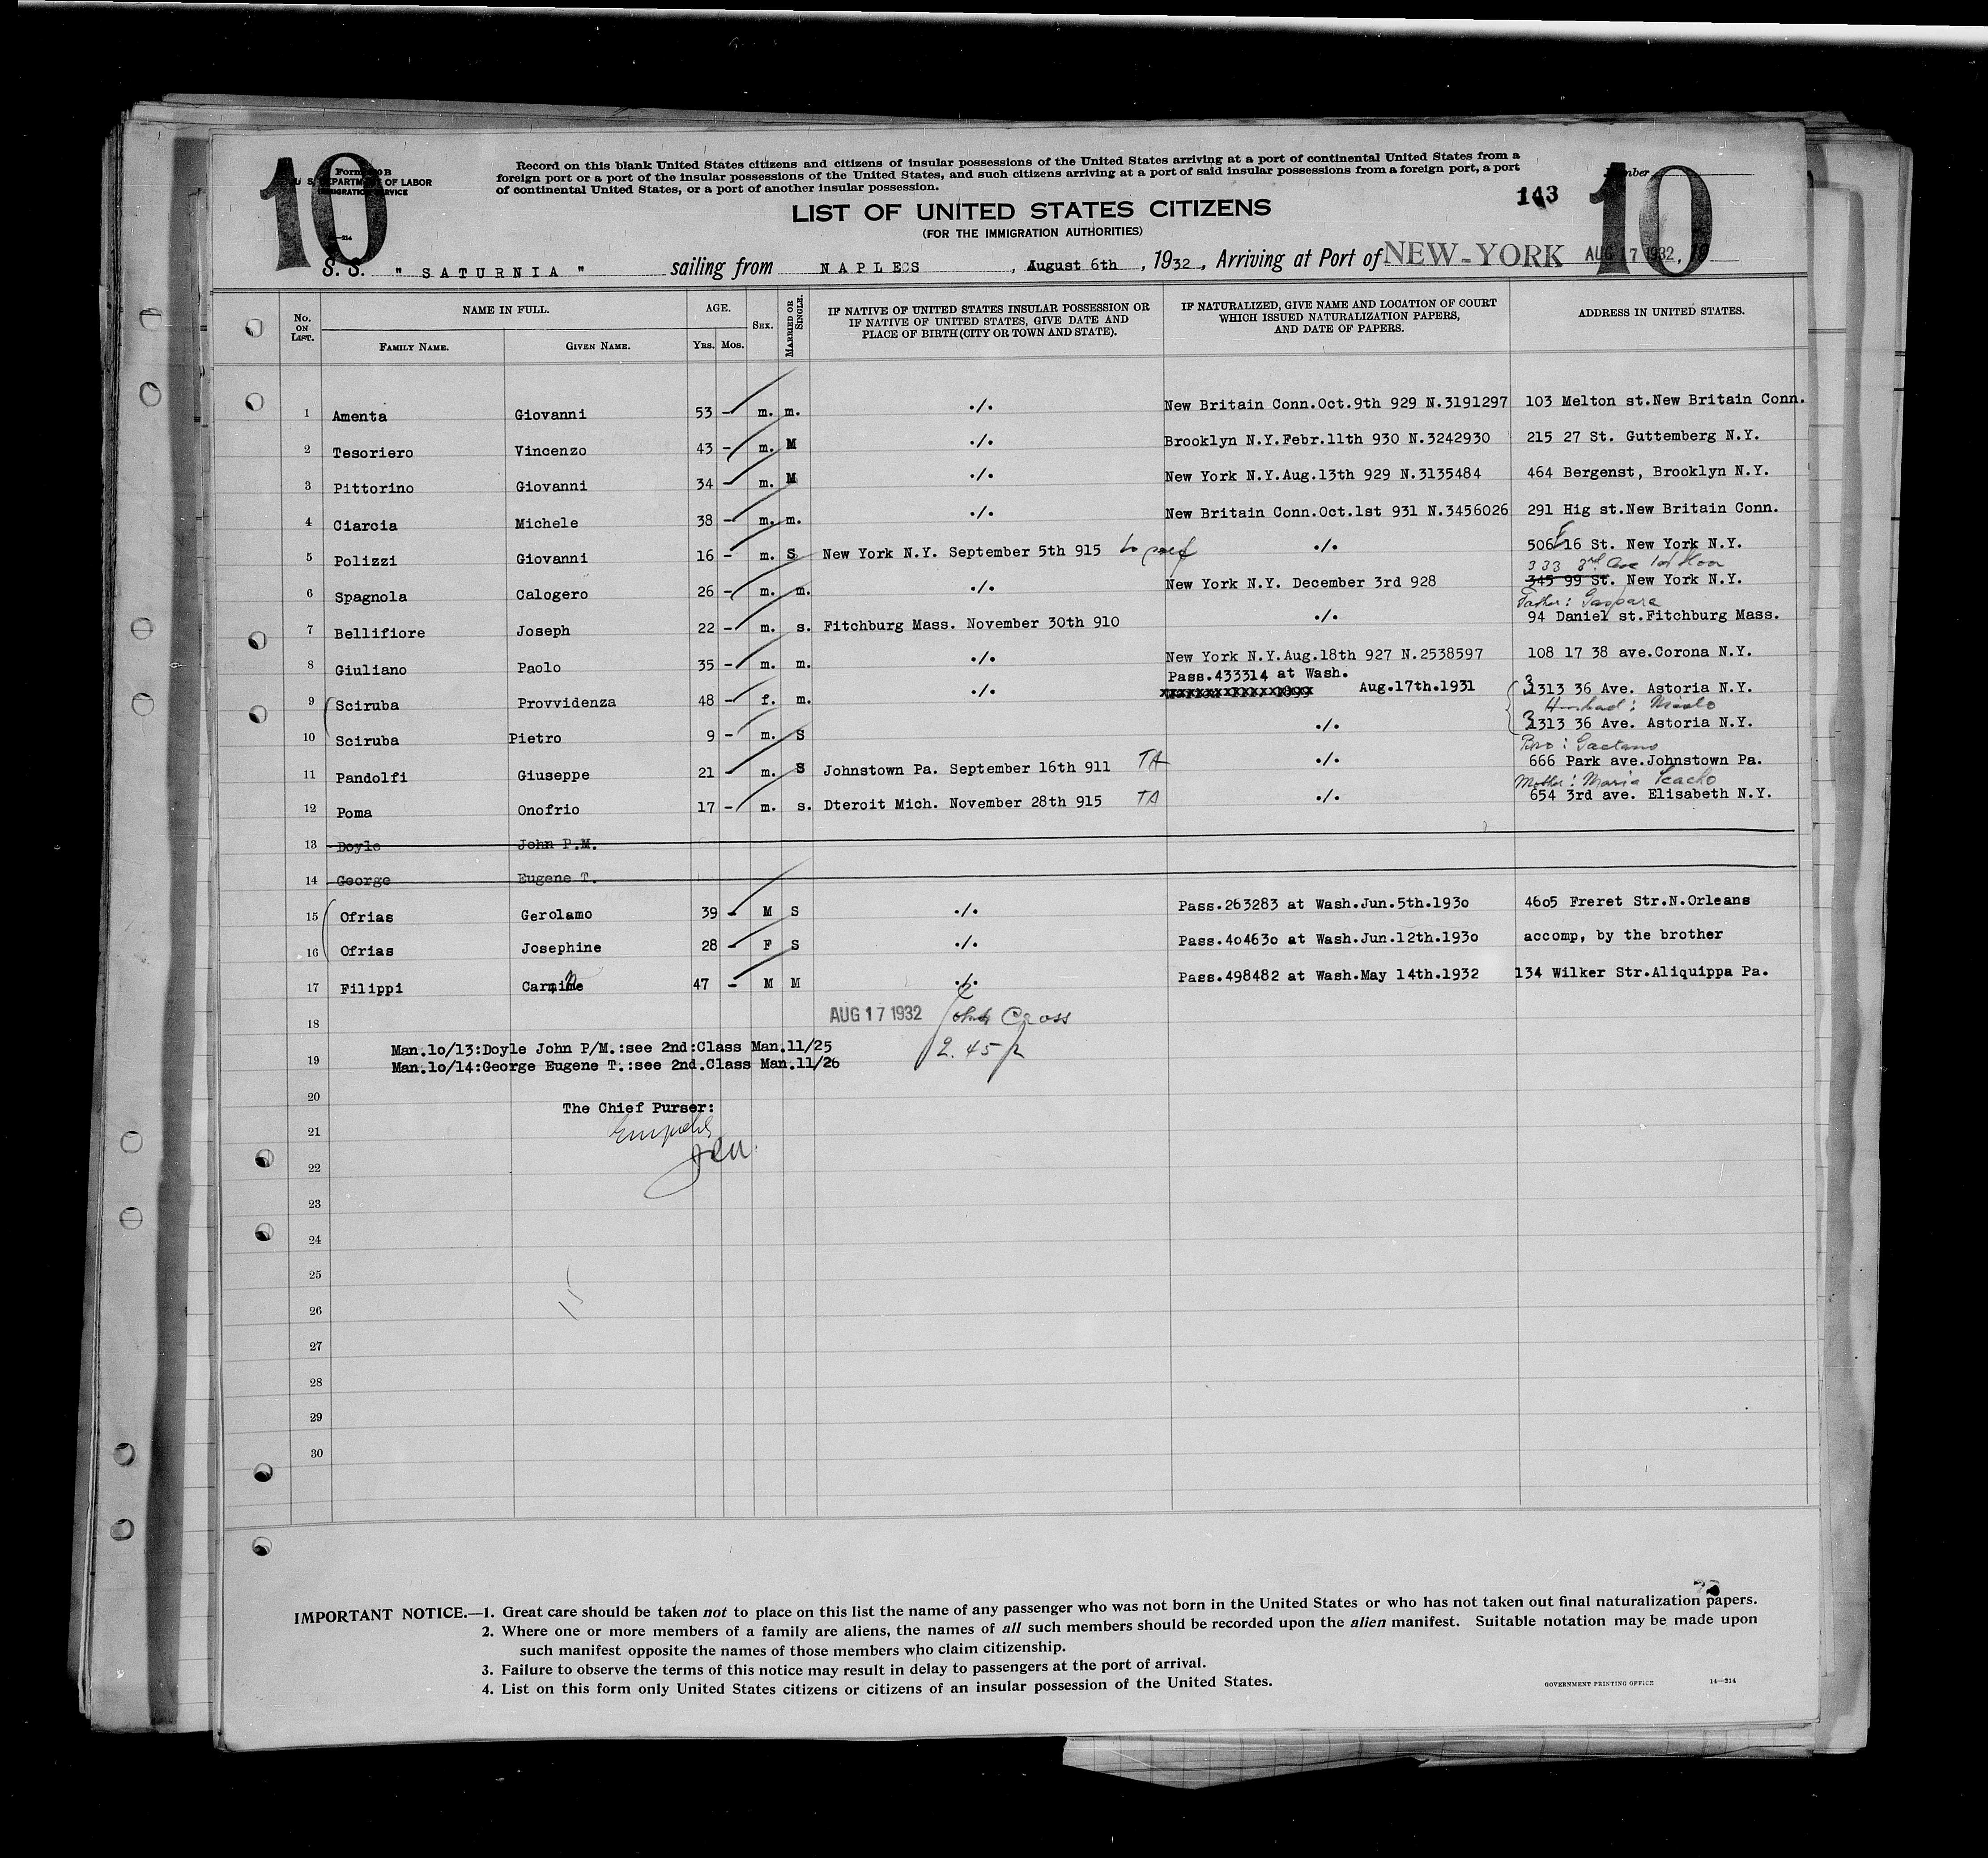 10
Form 630 B
U. S. DEPARTMENT OF LABOR
IMMIGRATION SERVICE
Record on this blank United States citizens and citizens of insular possessions of the United States arriving at a port of continental United States from a
foreign port or a port of the insular possessions of the United States, and such citizens arriving at a port of said insular possessions from a foreign port, a port
of continental United States, or a port of another insular possession.
Number
10
143
LIST OF UNITED STATES CITIZENS
(FOR THE IMMIGRATION AUTHORITIES)
S. S. " SATURNIA " sailing from NAPLES, August 6th, 1932, Arriving at Port of NEW-YORK AUG 17 1932, 19
No. ON LIST. NAME IN FULL. AGE. SEX. MARRIED OR SINGLE. IF NATIVE OF UNITED STATES INSULAR POSSESSION OR IF NATIVE OF UNITED STATES, GIVE DATE AND PLACE OF BIRTH (CITY OR TOWN AND STATE). IF NATURALIZED, GIVE NAME AND LOCATION OF COURT WHICH ISSUED NATURALIZATION PAPERS, AND DATE OF PAPERS. ADDRESS IN UNITED STATES.
FAMILY NAME. GIVEN NAME. YRS. MOS.
1 Amenta Giovanni 53 - m. m. ./. New Britain Conn.Oct.9th 929 N.3191297 103 Melton st.New Britain Conn.
2 Tesoriero Vincenzo 43 - m. M ./. Brooklyn N.Y.Febr.11th 930 N.3242930 215 27 St. Guttemberg N.Y.
3 Pittorino Giovanni 34 - m. M ./. New York N.Y.Aug.13th 929 N.3135484 464 Bergenst, Brooklyn N.Y.
4 Ciarcia Michele 38 - m. m. ./. New Britain Conn.Oct.1st 931 N.3456026 291 Hig st.New Britain Conn.
5 Polizzi Giovanni 16 - m. S New York N.Y. September 5th 915 ./. 506 E 16 St. New York N.Y.
333 3rd Ave 1st floor
6 Spagnola Calogero 26 - m. m. ./. New York N.Y. December 3rd 928 345 99 St. New York N.Y.
Father: Gaspare
7 Bellifiore Joseph 22 - m. s. Fitchburg Mass. November 30th 910 ./. 94 Daniel st.Fitchburg Mass.
8 Giuliano Paolo 35 - m. m. ./. New York N.Y.Aug.18th 927 N.2538597 108 17 38 ave.Corona N.Y.
Pass.433314 at Wash.
9 Sciruba Provvidenza 48 - f. m. ./. Aug.17th.1931 3 1313 36 Ave. Astoria N.Y.
Husband:
10 Sciruba Pietro 9 - m. S ./. 3 1313 36 Ave. Astoria N.Y.
Bro: Gaetano
11 Pandolfi Giuseppe 21 - m. S Johnstown Pa. September 16th 911 TA ./. 666 Park ave.Johnstown Pa.
Mother: Maria
12 Poma Onofrio 17 - m. s. Dteroit Mich. November 28th 915 TA ./. 654 3rd ave. Elisabeth N.Y.
13 Doyle John P.M.
14 George Eugene T.
15 Ofrias Gerolamo 39 - M S ./. Pass.263283 at Wash.Jun.5th.1930 4605 Freret Str.N.Orleans
16 Ofrias Josephine 28 - F S ./. Pass.404630 at Wash.Jun.12th.1930 accomp, by the brother
17 Filippi Carmine 47 - M M ./. Pass.498482 at Wash.May 14th.1932 134 Wilker Str.Aliquippa Pa.
18 AUG 17 1932 John Cross
Man.10/13:Doyle John P/M.:see 2nd:Class Man.11/25
2.45 p
19
Man.10/14:George Eugene T.:see 2nd.Class Man.11/26
20
The Chief Purser:
21
22
23
24
25
26
27
28
29
30
IMPORTANT NOTICE.—1. Great care should be taken not to place on this list the name of any passenger who was not born in the United States or who has not taken out final naturalization papers.
2. Where one or more members of a family are aliens, the names of all such members should be recorded upon the alien manifest. Suitable notation may be made upon
such manifest opposite the names of those members who claim citizenship.
3. Failure to observe the terms of this notice may result in delay to passengers at the port of arrival.
4. List on this form only United States citizens or citizens of an insular possession of the United States.
GOVERNMENT PRINTING OFFICE 14—214